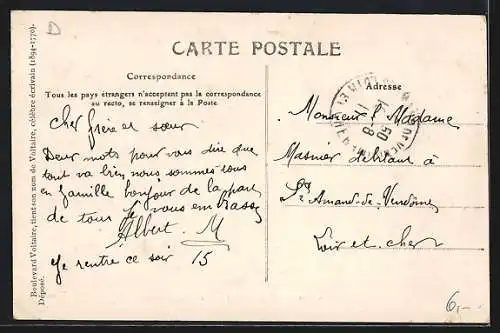 D
CARTE POSTALE
Correspondance
Tous les pays étrangers n'acceptent pas la correspondance
au recto, se renseigner à la Poste
Cher frère et sœur
Deux mots pour vous dire que
tout va bien nous sommes tous
en famille bonjour de la part
de tous je vous embrasse
Albert. M
Je rentre ce soir 15
Adresse
Monsieur & Madame
Masnier debitant à
St Amand-de-Vendôme
Loir et cher
Boulevard Voltaire, tient son nom de Voltaire, célèbre écrivain (1694-1770).
Déposé.
6,-